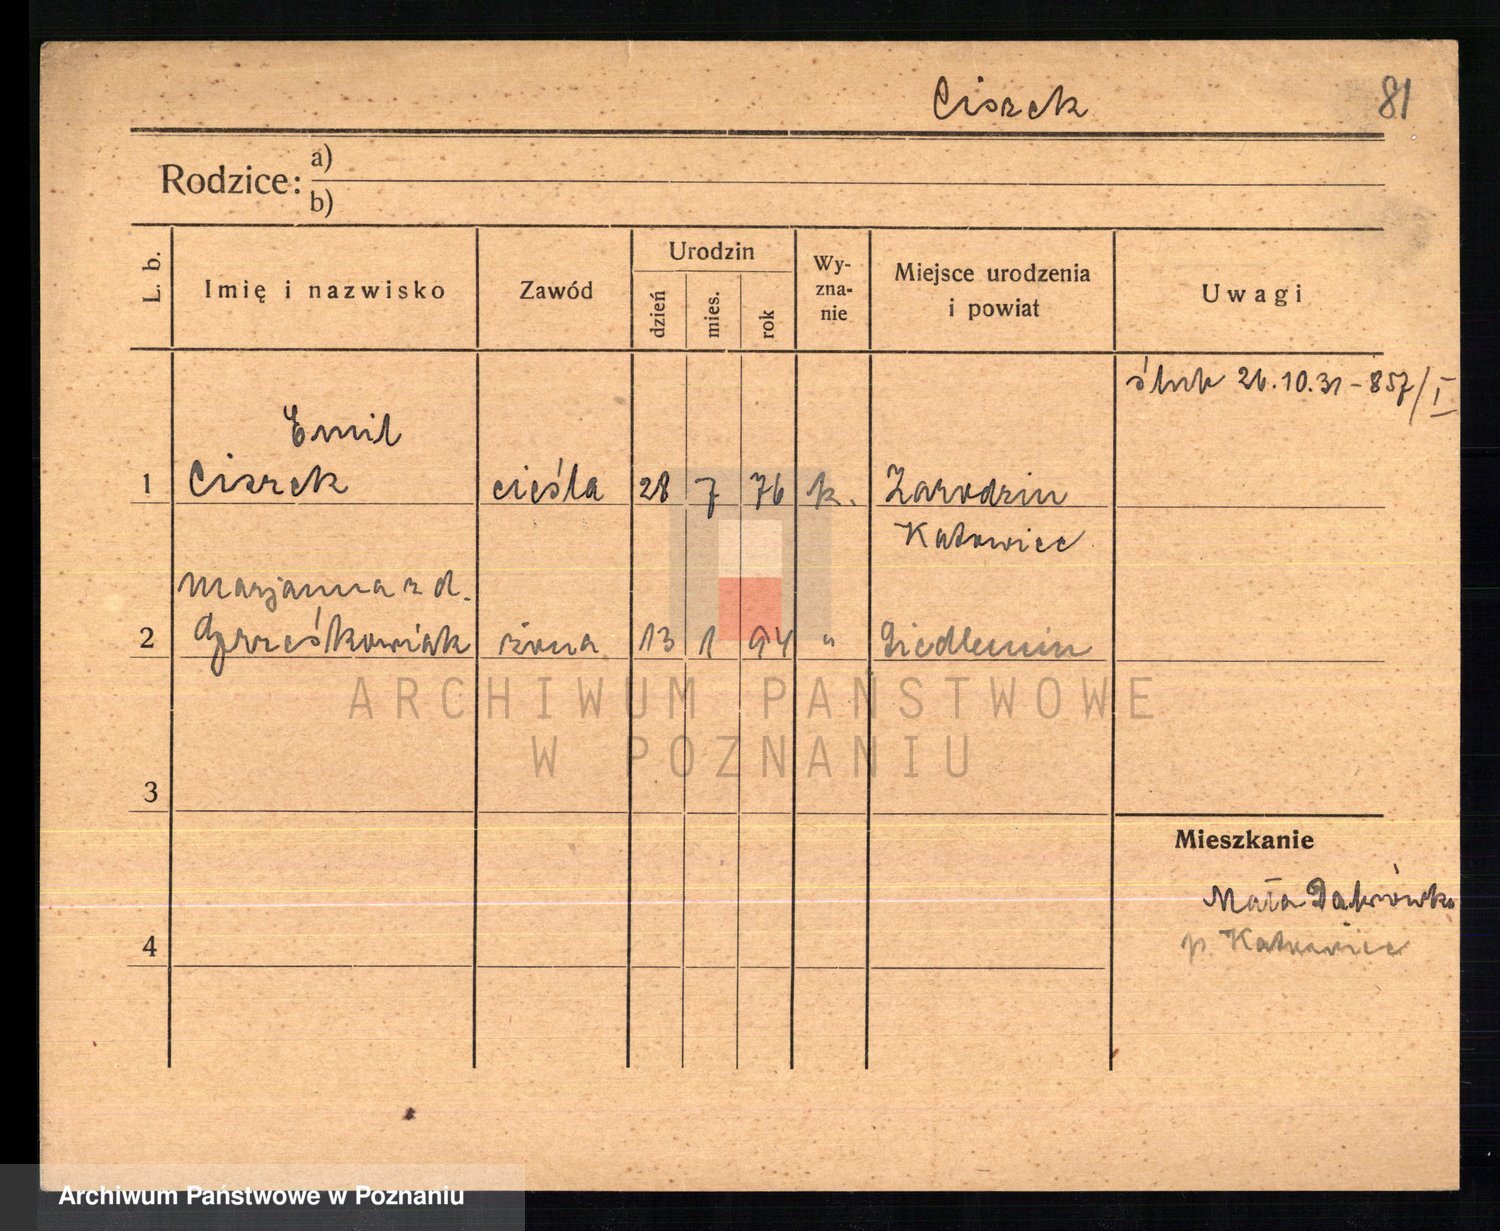 Ciszek 81
Rodzice: a)
b)
L. b.
Imię i nazwisko
Zawód
Urodzin
dzień
mies.
rok
Wy-
zna-
nie
Miejsce urodzenia
i powiat
Uwagi
ślub 26.10.31 - 857/I
Emil
1 Ciszek cieśla 28 7 76 k. Zarodzin
Katowice
Marjanna z d.
2 Grześkowiak żona 13 1 94 " Siedlemin
ARCHIWUM PAŃSTWOWE
W POZNANIU
3
Mieszkanie
Mała Dąbrówka
p. Katowice
4
Archiwum Państwowe w Poznaniu